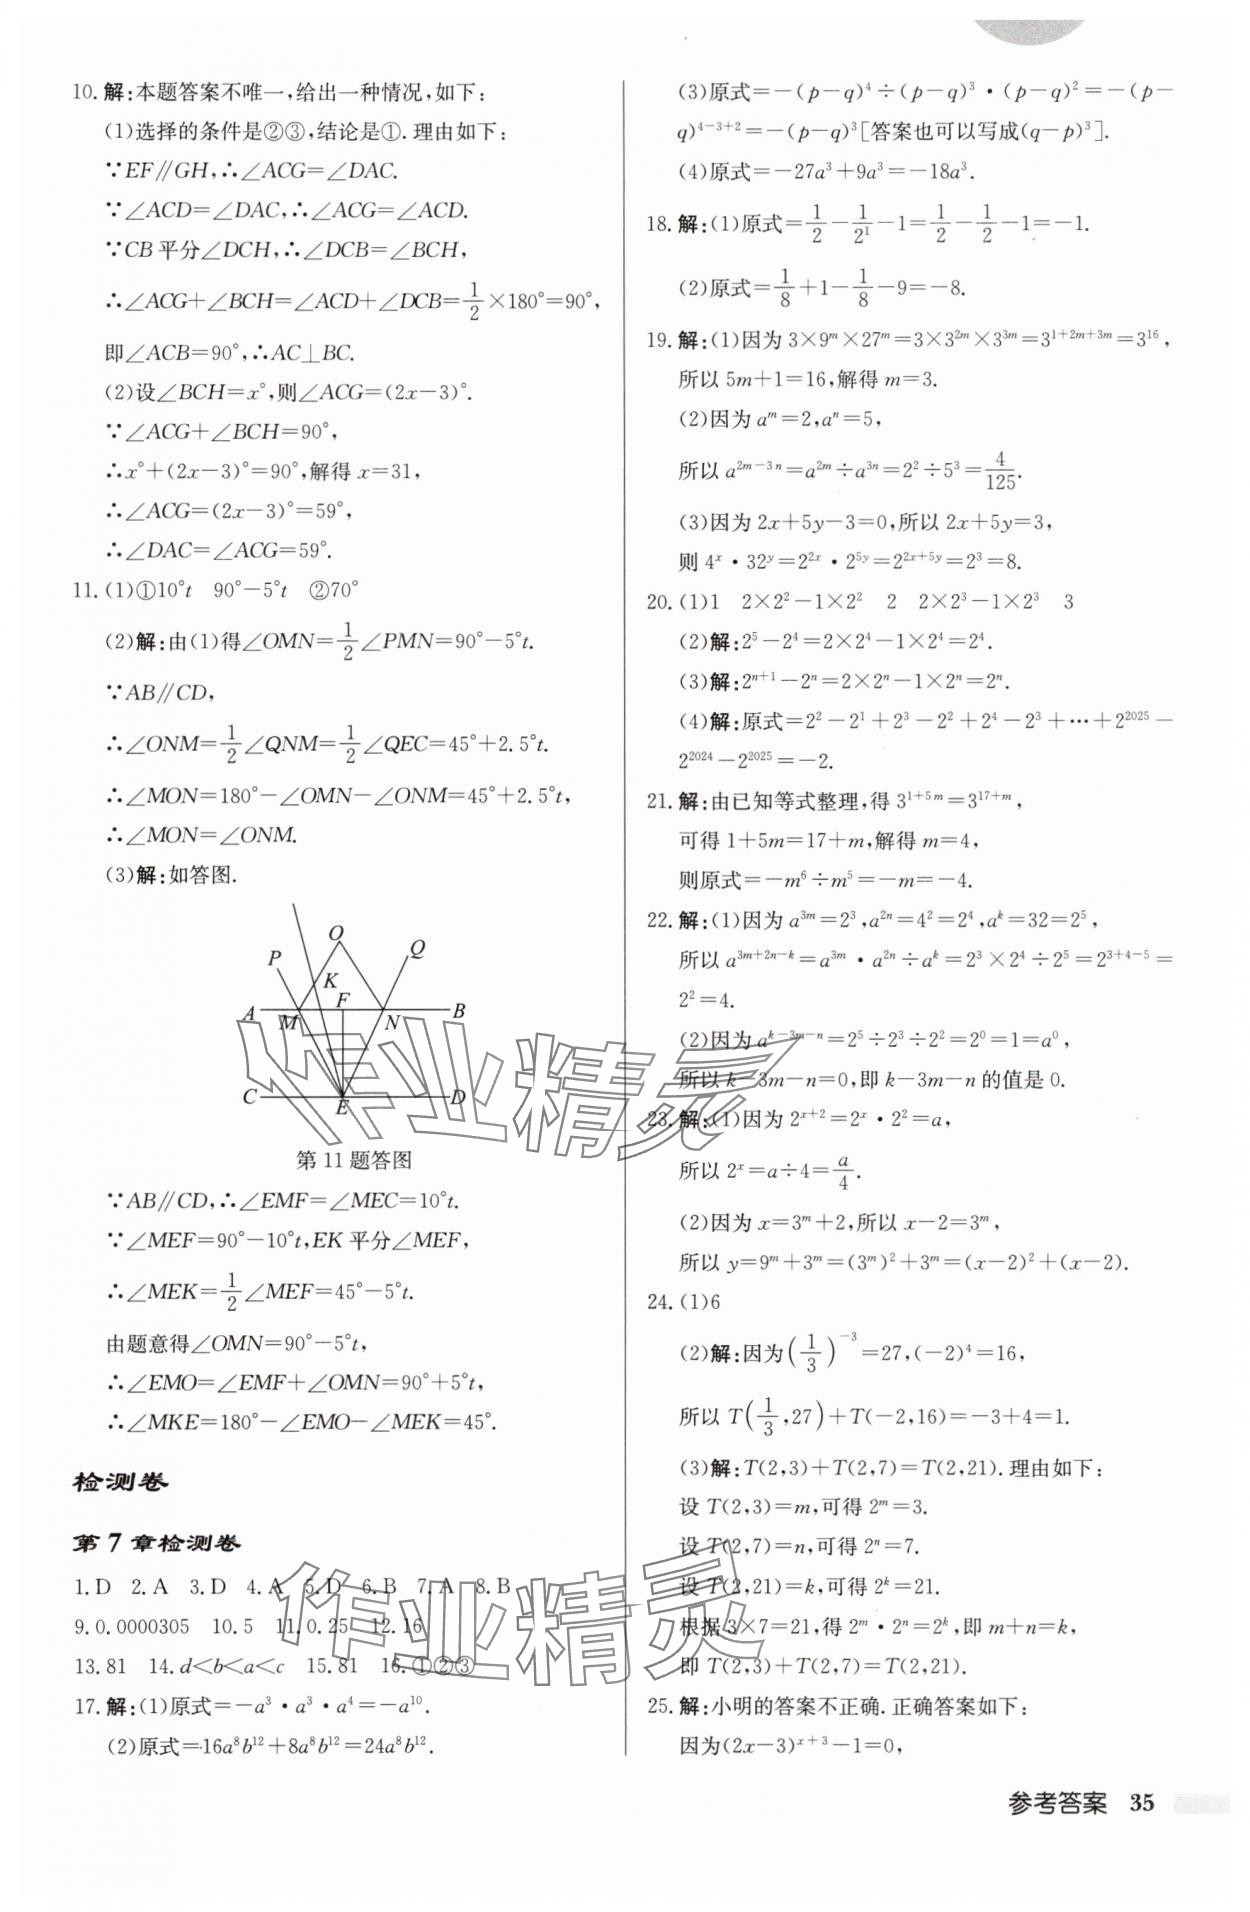 10. 解:本题答案不唯一,给出一种情况,如下:
(1)选择的条件是②③,结论是①. 理由如下:
∵EF∥GH,∴∠ACG=∠DAC.
∵∠ACD=∠DAC,∴∠ACG=∠ACD.
∵CB 平分∠DCH,∴∠DCB=∠BCH,
∴∠ACG+∠BCH=∠ACD+∠DCB=1/2×180°=90°,
即∠ACB=90°,∴AC⊥BC.
(2)设∠BCH=x°,则∠ACG=(2x-3)°.
∵∠ACG+∠BCH=90°,
∴x°+(2x-3)°=90°,解得 x=31,
∴∠ACG=(2x-3)°=59°,
∴∠DAC=∠ACG=59°.
11. (1)①10°t 90°-5°t ②70°
(2)解:由(1)得∠OMN=1/2∠PMN=90°-5°t.
∵AB∥CD,
∴∠ONM=1/2∠QNM=1/2∠QEC=45°+2.5°t.
∴∠MON=180°-∠OMN-∠ONM=45°+2.5°t,
∴∠MON=∠ONM.
(3)解:如答图.
O
P
Q
K
A
F
B
M
N
C
E
D
第 11 题答图
∵AB∥CD,∴∠EMF=∠MEC=10°t.
∵∠MEF=90°-10°t,EK 平分∠MEF,
∴∠MEK=1/2∠MEF=45°-5°t.
由题意得∠OMN=90°-5°t,
∴∠EMO=∠EMF+∠OMN=90°+5°t,
∴∠MKE=180°-∠EMO-∠MEK=45°.
检测卷
第 7 章检测卷
1. D 2. A 3. D 4. A 5. D 6. B 7. A 8. B
9. 0.0000305 10. 5 11. 0.25 12. 16
13. 81 14. d<b<a<c 15. 81 16. ①②③
17. 解:(1)原式=-a³·a³·a⁴=-a¹⁰.
(2)原式=16a⁸b¹²+8a⁸b¹²=24a⁸b¹².
(3)原式=-(p-q)⁴÷(p-q)³·(p-q)²=-(p-
q)⁴⁻³⁺²=-(p-q)³[答案也可以写成(q-p)³].
(4)原式=-27a³+9a³=-18a³.
18. 解:(1)原式=1/2-1/2¹-1=1/2-1/2-1=-1.
(2)原式=1/8+1-1/8-9=-8.
19. 解:(1)因为 3×9^m×27^m=3×3^(2m)×3^(3m)=3^(1+2m+3m)=3¹⁶,
所以 5m+1=16,解得 m=3.
(2)因为 a^m=2,a^n=5,
所以 a^(2m-3n)=a^(2m)÷a^(3n)=2²÷5³=4/125.
(3)因为 2x+5y-3=0,所以 2x+5y=3,
则 4^x·32^y=2^(2x)·2^(5y)=2^(2x+5y)=2³=8.
20. (1)1 2×2²-1×2² 2 2×2³-1×2³ 3
(2)解:2⁵-2⁴=2×2⁴-1×2⁴=2⁴.
(3)解:2^(n+1)-2^n=2×2^n-1×2^n=2^n.
(4)解:原式=2²-2¹+2³-2²+2⁴-2³+⋯+2²⁰²⁵-
2²⁰²⁴-2²⁰²⁵=-2.
21. 解:由已知等式整理,得 3^(1+5m)=3^(17+m),
可得 1+5m=17+m,解得 m=4,
则原式=-m⁶÷m⁵=-m=-4.
22. 解:(1)因为 a^(3m)=2³,a^(2n)=4²=2⁴,a^k=32=2⁵,
所以 a^(3m+2n-k)=a^(3m)·a^(2n)÷a^k=2³×2⁴÷2⁵=2^(3+4-5)=
2²=4.
(2)因为 a^(k-3m-n)=2⁵÷2³÷2²=2⁰=1=a⁰,
所以 k-3m-n=0,即 k-3m-n 的值是 0.
23. 解:(1)因为 2^(x+2)=2^x·2²=a,
所以 2^x=a÷4=a/4.
(2)因为 x=3^m+2,所以 x-2=3^m,
所以 y=9^m+3^m=(3^m)²+3^m=(x-2)²+(x-2).
24. (1)6
(2)解:因为(1/3)⁻³=27,(-2)⁴=16,
所以 T(1/3,27)+T(-2,16)=-3+4=1.
(3)解:T(2,3)+T(2,7)=T(2,21). 理由如下:
设 T(2,3)=m,可得 2^m=3.
设 T(2,7)=n,可得 2^n=7.
设 T(2,21)=k,可得 2^k=21.
根据 3×7=21,得 2^m·2^n=2^k,即 m+n=k,
即 T(2,3)+T(2,7)=T(2,21).
25. 解:小明的答案不正确. 正确答案如下:
因为(2x-3)^(x+3)-1=0,
参考答案 35
作业精灵
作业精灵